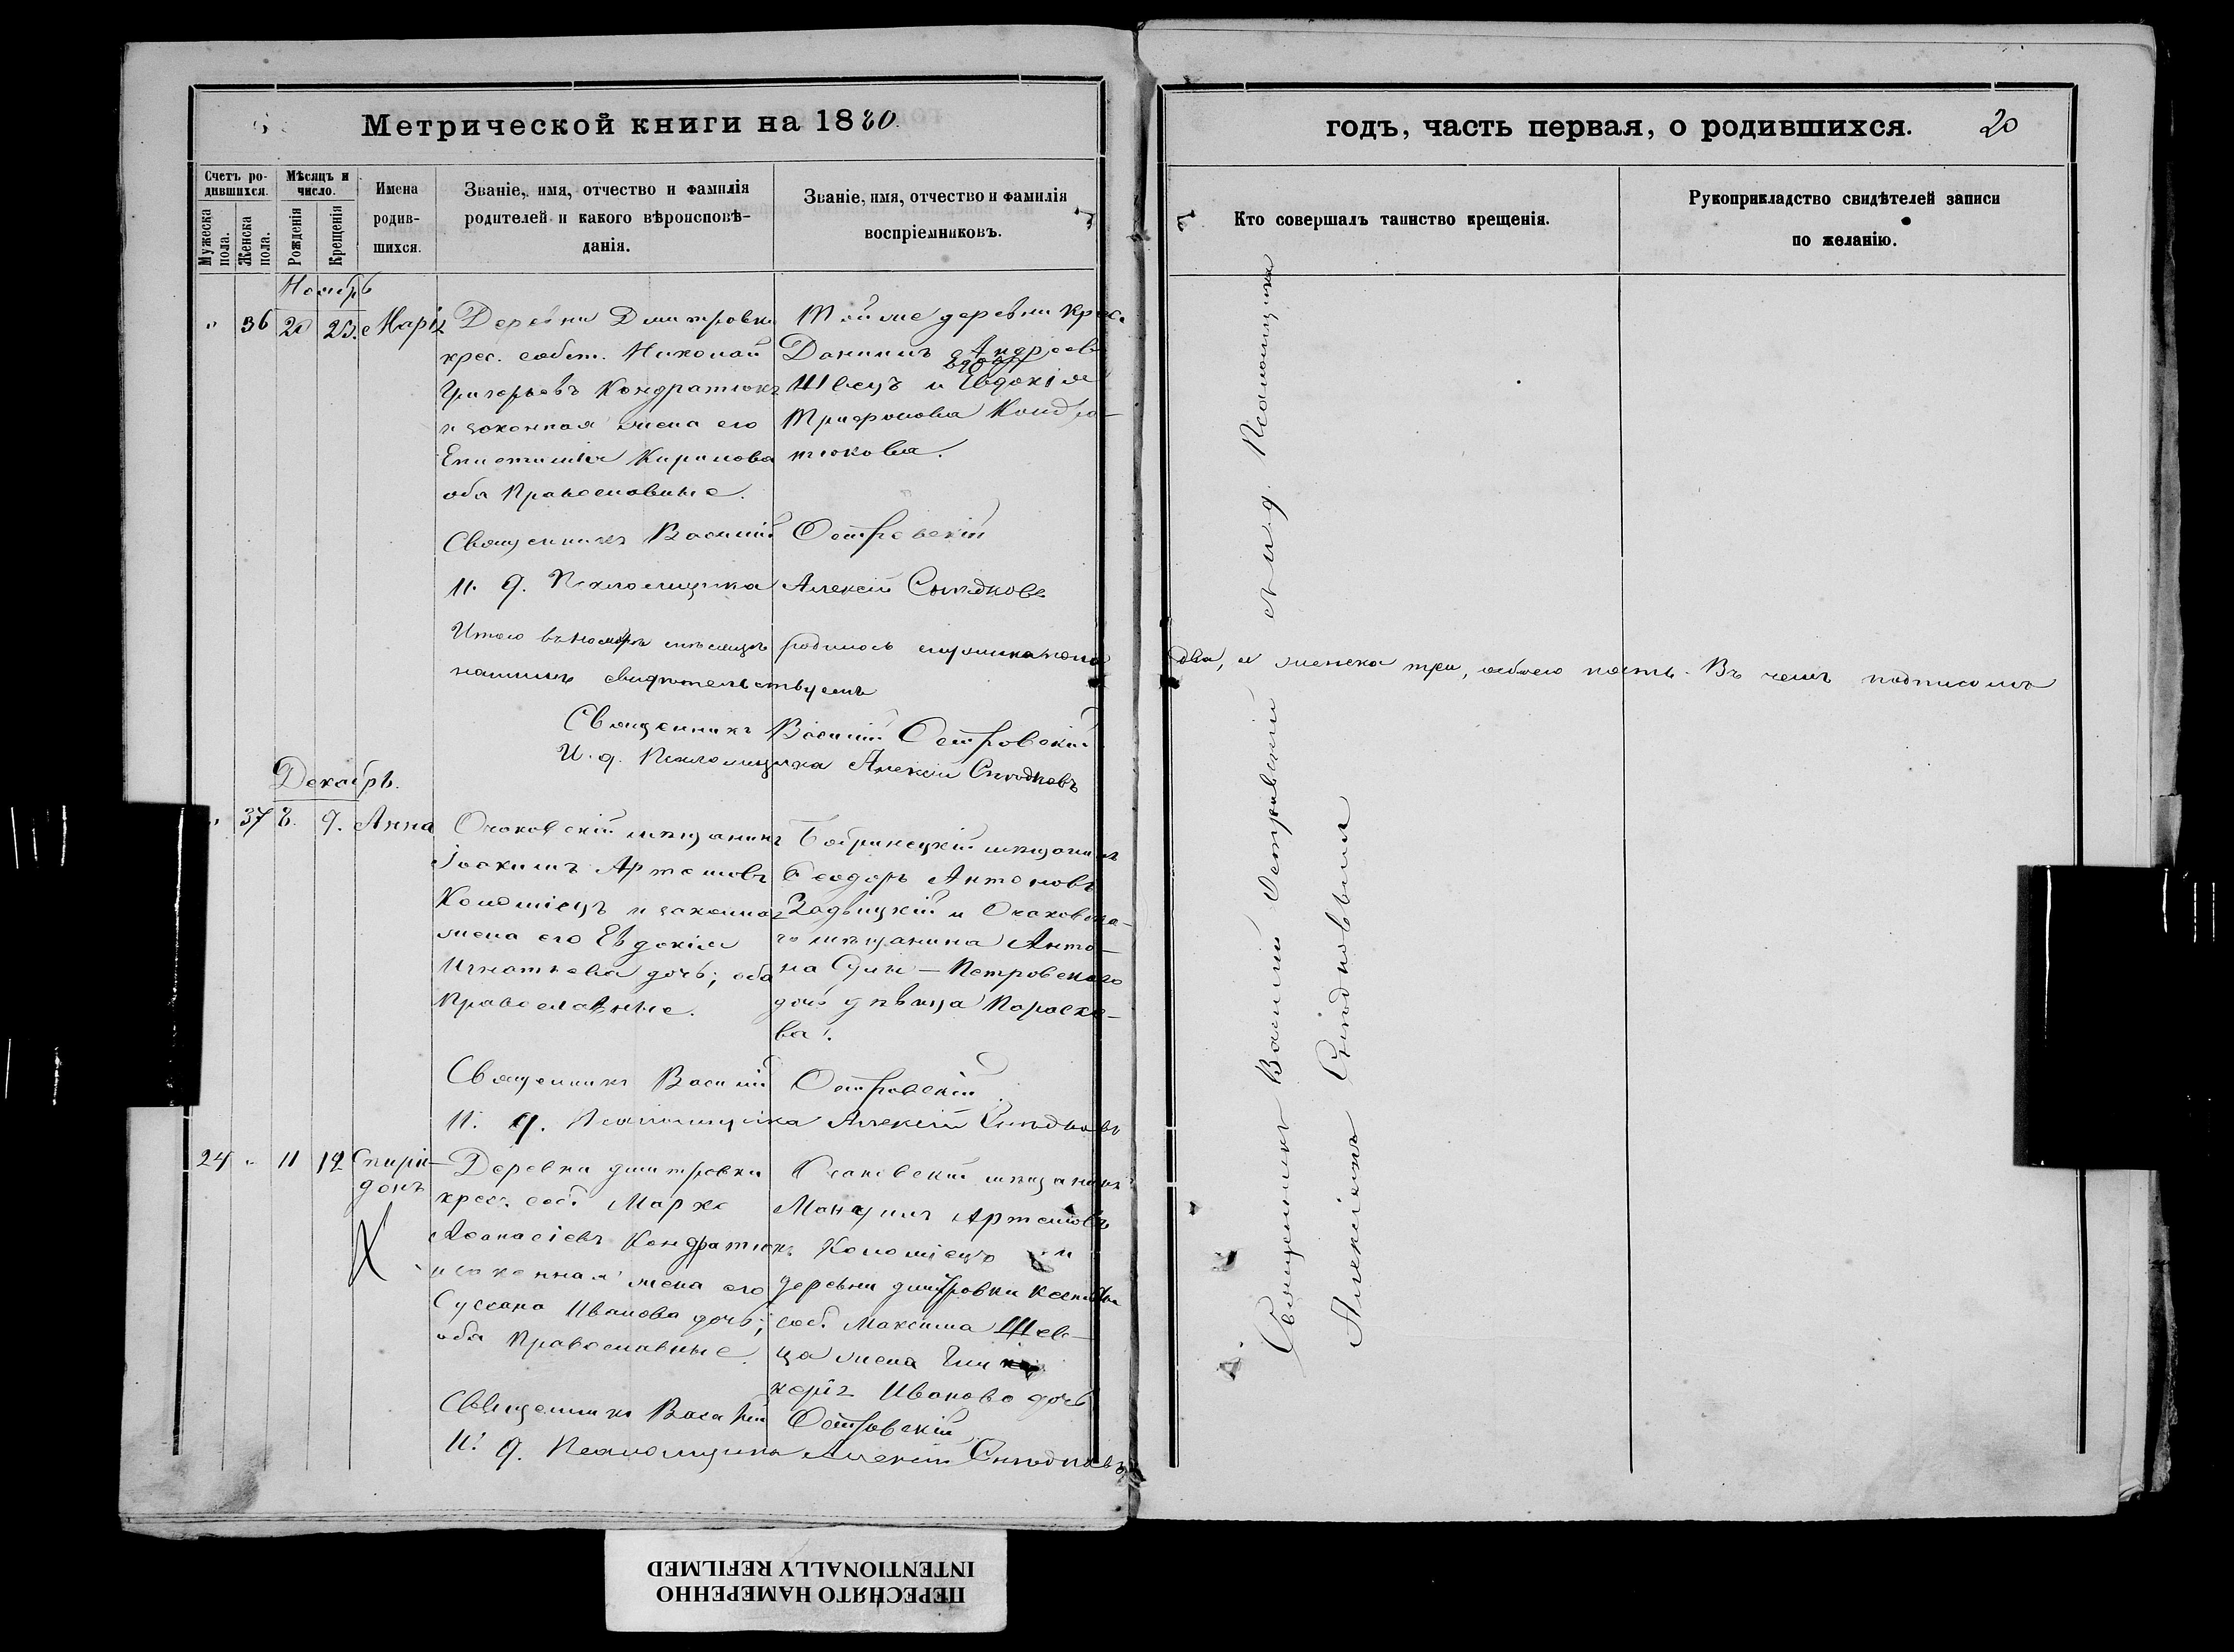 Метрической книги на 1880.
Счетъ родившихся.
Мѣсяцъ и число.
Имена родившихся.
Званіе, имя, отчество и фамилія родителей и какого вѣроисповѣданія.
Званіе, имя, отчество и фамилія воспріемниковъ.
Мужеска пола.
Женска пола.
Рожденія
Крещенія
Ноябрь
" 36 20 23. Марія
Деревни Дмитровки
крес. собст. Николай
Григорьевъ Кондратюкъ
и законная жена его
Епистимія Кирилова
оба Православные.
Той же деревни крес.
Даніилъ Андреевъ
Швецъ и Евдокія
Трифонова Кондра-
тюкова.
Священникъ Василій Островскій
И. д. Псаломщика Алексій
Итого въ Ноябрѣ мѣсяцѣ родилось мужеска пола
два, а женска три, обоего пять. Въ чемъ подписомъ
нашимъ свидѣтельствуемъ
Священникъ Василій Островскій
И. д. Псаломщика Алексій
Декабрь.
" 37 8. 9. Анна
Очаковскій мѣщанинъ
Іоакимъ Артемовъ
Коломіецъ и законная
жена его Евдокія
Игнатьева дочь; оба
Православные.
Бобринецкій мѣщанинъ
Ѳеодоръ Антоновъ
и Очаковска-
го мѣщанина Анто-
на Петровскаго
дочь дѣвица Параске-
ва.
Священникъ Василій Островскій
И. д. Псаломщика Алексій
24 " 11 12 Спири-
донъ
Деревни Дмитровки
крест. соб. Марко
Аѳанасіевъ Кондратюкъ
и законная жена его
Суссана Иванова дочь;
оба Православные.
Очаковскій мѣщанинъ
Артемовъ
Коломіецъ и
деревни Дмитровки
соб. Максима Шев-
ца жена Гли-
керія Иванова дочь
Священникъ Василій Островскій
И. д. Псаломщика Алексій
годъ, часть первая, о родившихся.
20
Кто совершалъ таинство крещенія.
Рукоприкладство свидѣтелей записи по желанію.
Священникъ Василій Островскій съ и. д. Псаломщика
Алексіемъ
ПЕРЕСНЯТО НАМЕРЕННО
INTENTIONALLY REFILMED